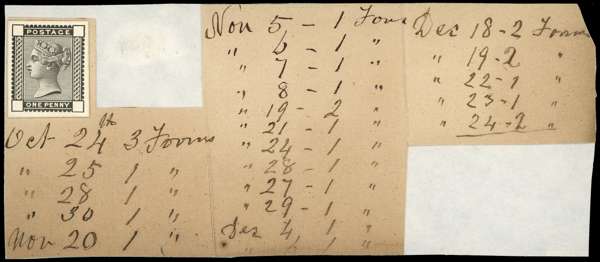 POSTAGE
ONE PENNY
Oct 24th 3 Forms
" 25 1 "
" 28 1 "
" 30 1 "
Nov 20 1 "
Nov 5 - 1 Forms
" 6 - 1 "
" 7 - 1 "
" 8 - 1 "
" 19 - 2 "
" 21 - 1 "
" 24 - 1 "
" 28 - 1 "
" 27 - 1 "
" 29 - 1 "
Dec 4, 1 "
" 1 "
Dec 18 - 2 Forms
" 19 - 2 "
" 22 - 1 "
" 23 - 1 "
" 24 - 2 "